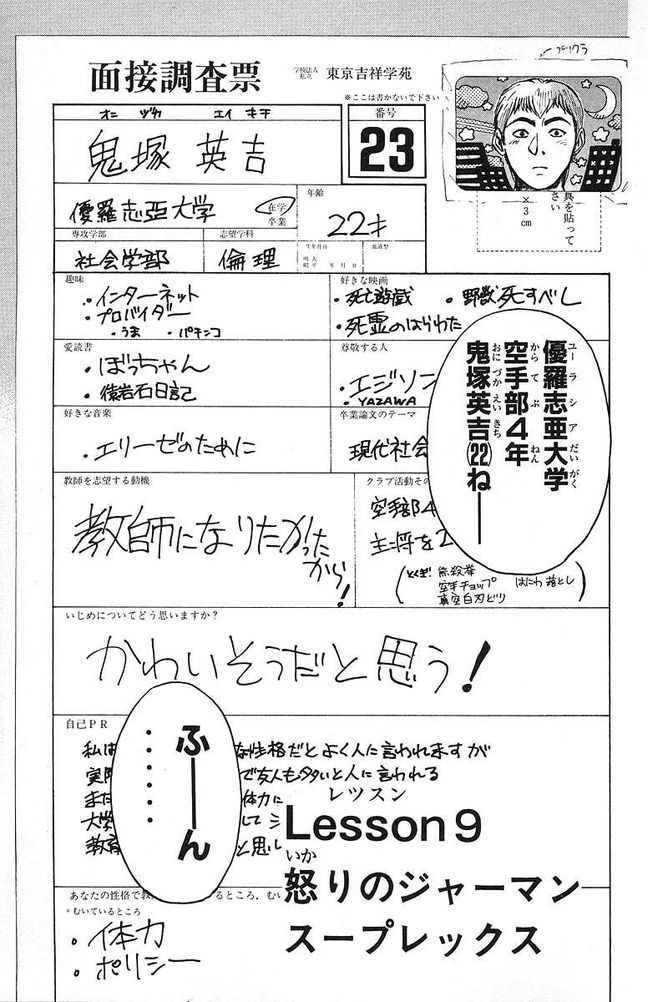 プリクラ
面接調査票
学校法人
私立
東京吉祥学苑
※ここは書かないで下さい
オニ ヅカ エイ キチ
鬼塚 英吉
番号
23
優羅志亜大学
在学
卒業
年齢
22才
具を貼って
さい
×3cm
専攻学部
社会学部
志望学科
倫理
生年月日
年 月 日
血液型
趣味
・インターネット
・プロバイダー
・うま ・パチンコ
好きな映画
・死亡遊戯 ・野獣死すべし
・死霊のはらわた
愛読書
・ぼっちゃん
・徒岩石日記
尊敬する人
・エジソン
・YAZAWA
好きな音楽
・エリーゼのために
卒業論文のテーマ
現代社会
優羅志亜大学
ユーラシアだいがく
空手部4年
からてぶ ねん
鬼塚英吉(22)ねーー
おにづかえいきち
教師を志望する動機
教師になりたかった
から!
クラブ活動その
空手部4
主将を2
とくぎ
無殺拳
空手チョップ
真空白刃どり
はにわ落とし
いじめについてどう思いますか?
かわいそうだと思う!
自己PR
私は
な性格だとよく人に言われますが
実際
で友人も多いと人に言われる
また
体力に
大学
して
教育
と思い
ふーーん
・・・・・・
レッスン
Lesson 9
いか
怒りのジャーマン
スープレックス
あなたの性格で教
るところ,むい
・むいているところ
・体力
・ポリシー